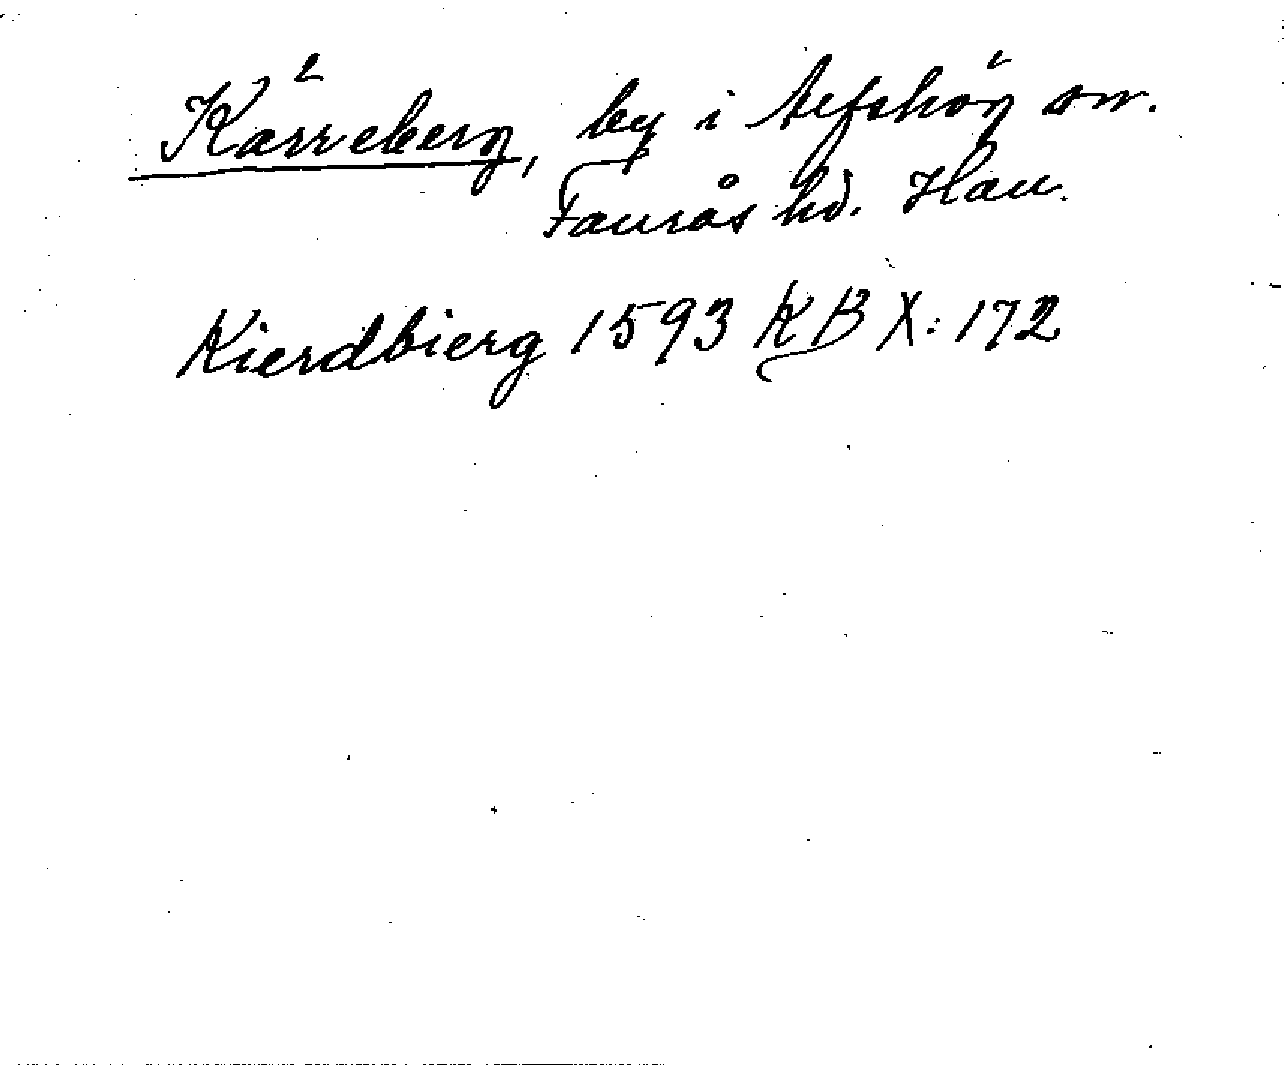 Kärreberg, by i Asfshög sn.
Faurås hd. Hall.
Kierdbierg 1593 KB X: 172